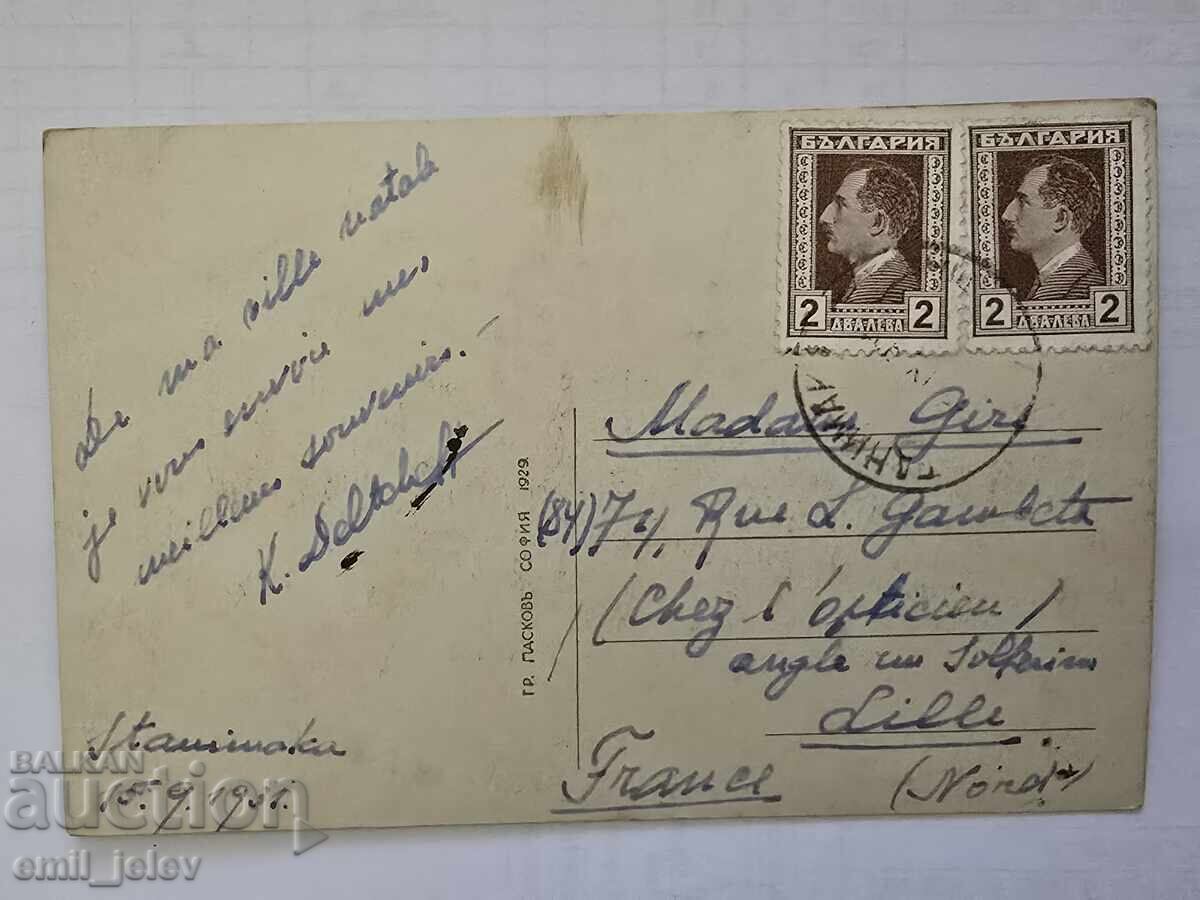 De ma ville natale
je vous envoie mes
meilleurs souvenirs.-
K.
Stanimaka
15.9.1931.
ГР. ПАСКОВЪ СОФИЯ 1929.
БЪЛГАРИЯ
2 ДВА ЛЕВА 2
БЪЛГАРИЯ
2 ДВА ЛЕВА 2
Madame
(84) 74, Rue L. Gambetta
(Chez l'opticien)
angle Solferino
Lille
France (Nord)
BALKAN
auction
emil_jelev